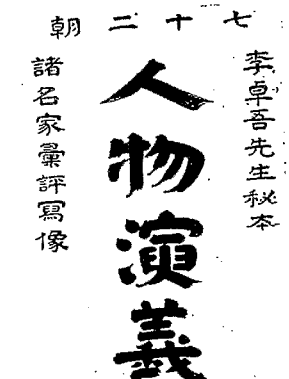 七十二朝
李卓吾先生秘本
人物演義
諸名家彙評寫像